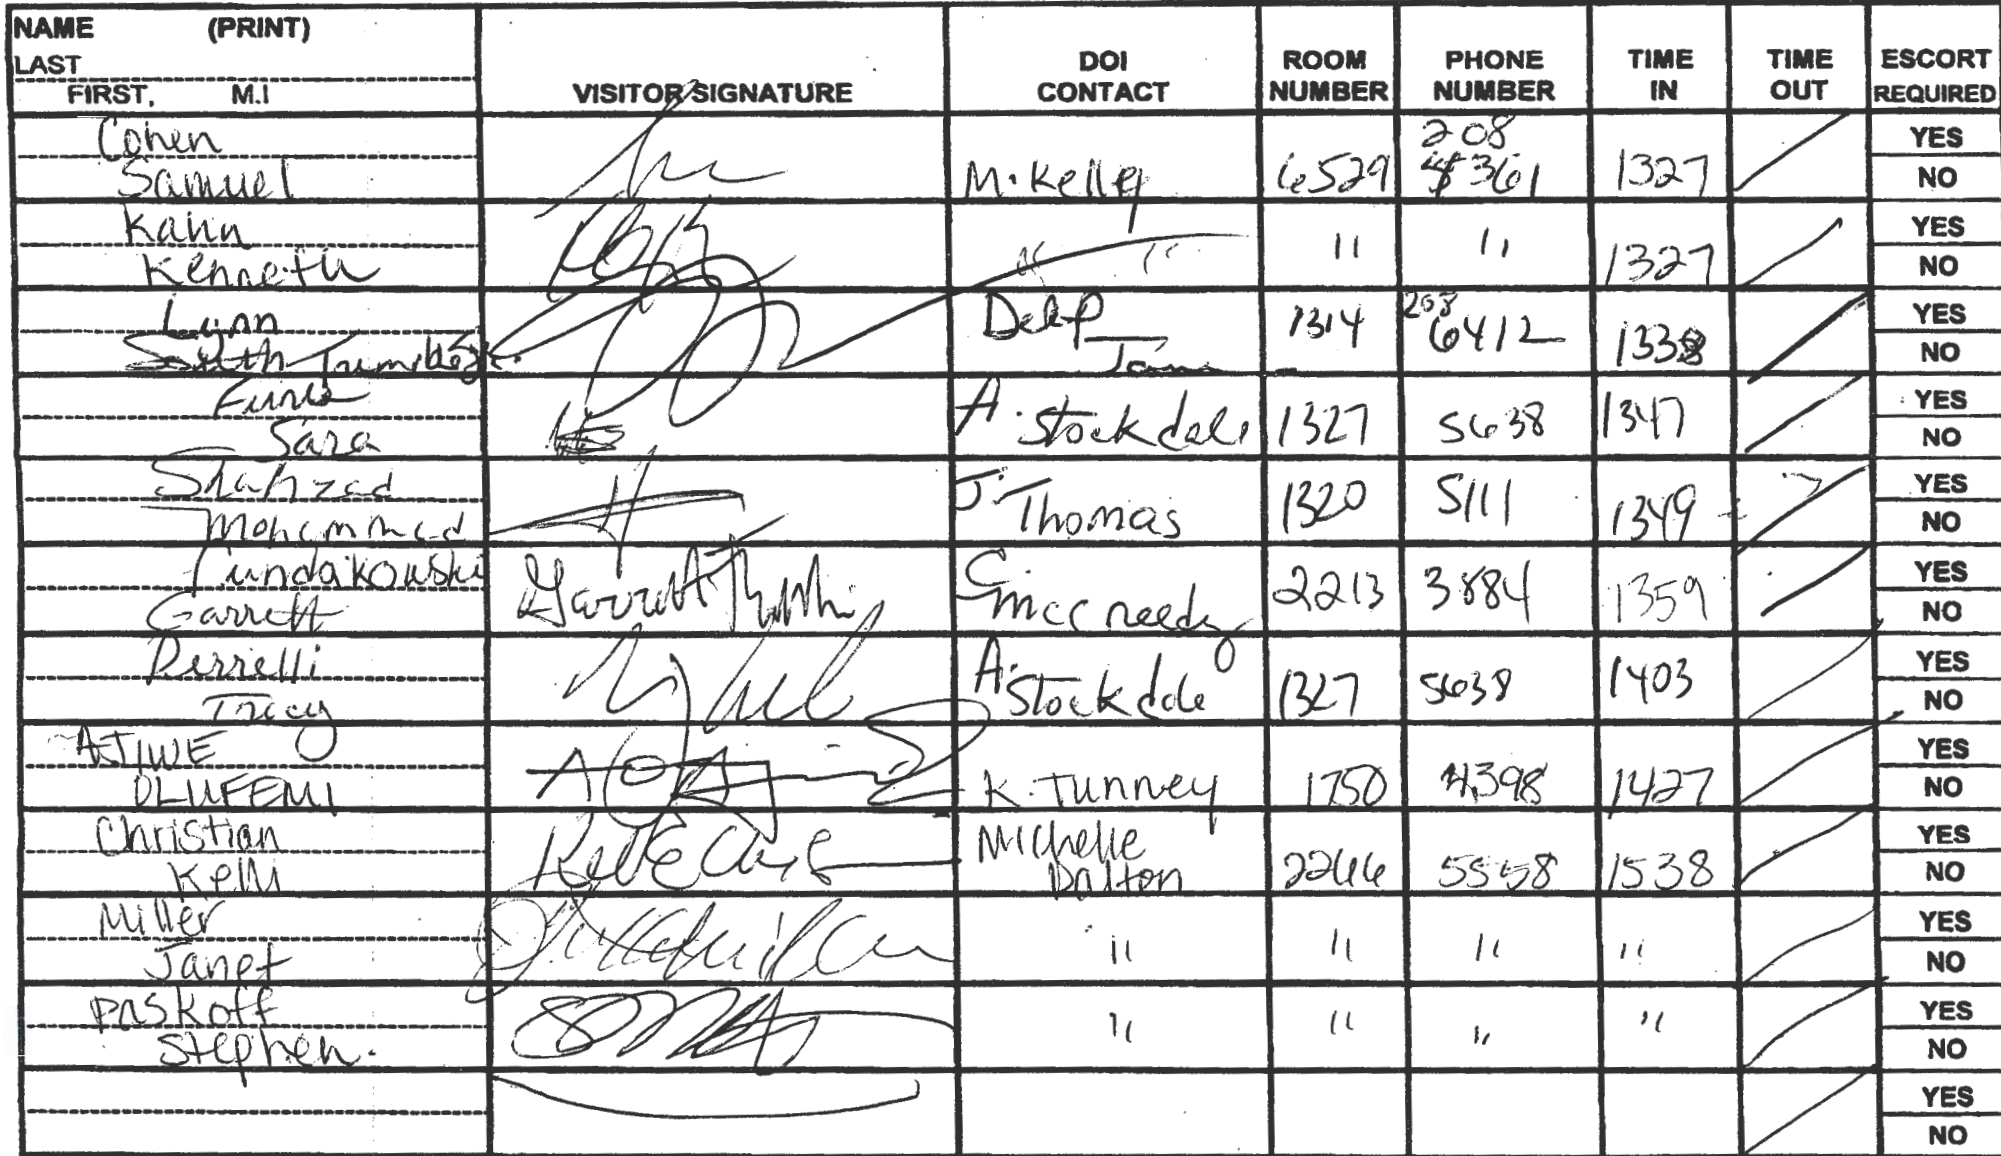 NAME (PRINT)
LAST
FIRST, M.I
VISITOR SIGNATURE
DOI CONTACT
ROOM NUMBER
PHONE NUMBER
TIME IN
TIME OUT
ESCORT REQUIRED
Cohen
Samuel M. Kelley 6529 208 4361 1327 YES NO
Kahn
Kenneth " " " " 1327 YES NO
Lynn
Delp 1314 208 6412 1338 YES NO
Sara A. Stockdale 1327 5638 1347 YES NO
Shahzad
Mohammad J. Thomas 1320 5111 1349 YES NO
Garrett C. McCready 2213 3884 1359 YES NO
Perrelli
Tracy A. Stockdale 1327 5638 1403 YES NO
AJIWE
OLUFEMI K. Tunney 1750 4398 1427 YES NO
Christian
Kelli Michelle Dalton 2266 5558 1538 YES NO
Miller
Janet " " " " YES NO
Paskoff
Stephen. " " " " YES NO
YES
NO